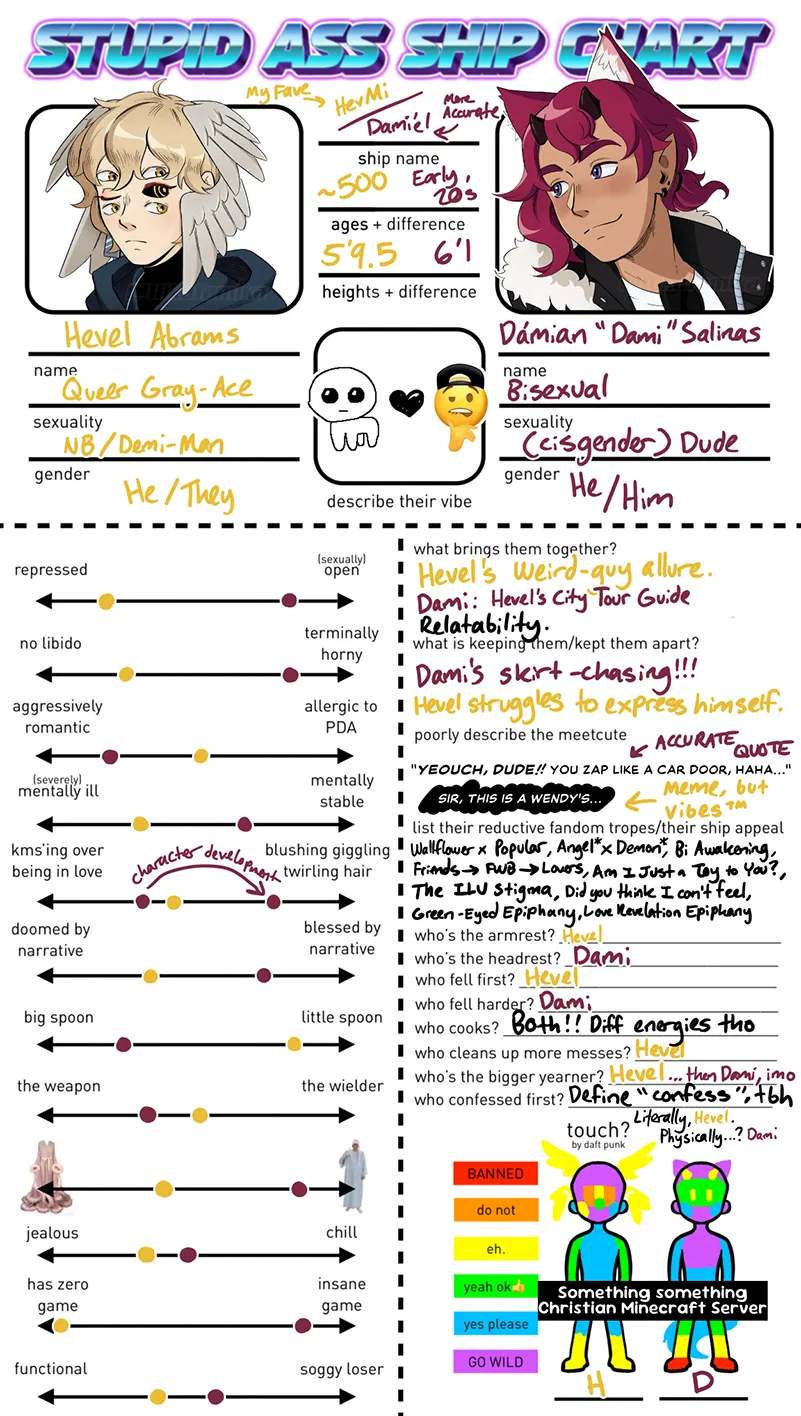 STUPID ASS SHIP CHART
My Fave
HevMi
Damiél
More
Accurate
ship name
~500
Early,
20s
ages + difference
5'9.5
6'1
heights + difference
Hevel Abrams
name
Queer Gray-Ace
sexuality
NB/Demi-Man
gender
He/They
describe their vibe
Dámian "Dami" Salinas
name
Bisexual
sexuality
(cisgender) Dude
gender
He/Him
repressed
(sexually)
open
no libido
terminally
horny
aggressively
romantic
allergic to
PDA
(severely)
mentally ill
mentally
stable
kms'ing over
being in love
character development
blushing giggling
twirling hair
doomed by
narrative
blessed by
narrative
big spoon
little spoon
the weapon
the wielder
jealous
chill
has zero
game
insane
game
functional
soggy loser
what brings them together?
Hevel's Weird-guy allure.
Dami: Hevel's City Tour Guide
Relatability.
what is keeping them/kept them apart?
Dami's skirt-chasing!!!
Hevel struggles to express himself.
poorly describe the meetcute
ACCURATE QUOTE
"YEOUCH, DUDE!! YOU ZAP LIKE A CAR DOOR, HAHA..."
SIR, THIS IS A WENDY'S...
MEME, but
vibes™
list their reductive fandom tropes/their ship appeal
Wallflower x Popular, Angel* x Demon*, Bi Awakening,
Friends → FWB → Lovers, Am I Just a Toy to You?,
The ILU Stigma, Did you think I can't feel,
Green-Eyed Epiphany, Love Revelation Epiphany
who's the armrest? Hevel
who's the headrest? Dami
who fell first? Hevel
who fell harder? Dami
who cooks? Both!! Diff energies tho
who cleans up more messes? Hevel
who's the bigger yearner? Hevel ...then Dami, imo
who confessed first? Define "confess", tbh
Literally, Hevel.
Physically...? Dami
touch?
by daft punk
BANNED
do not
eh.
yeah ok👍
yes please
GO WILD
Something something
Christian Minecraft Server
H
D